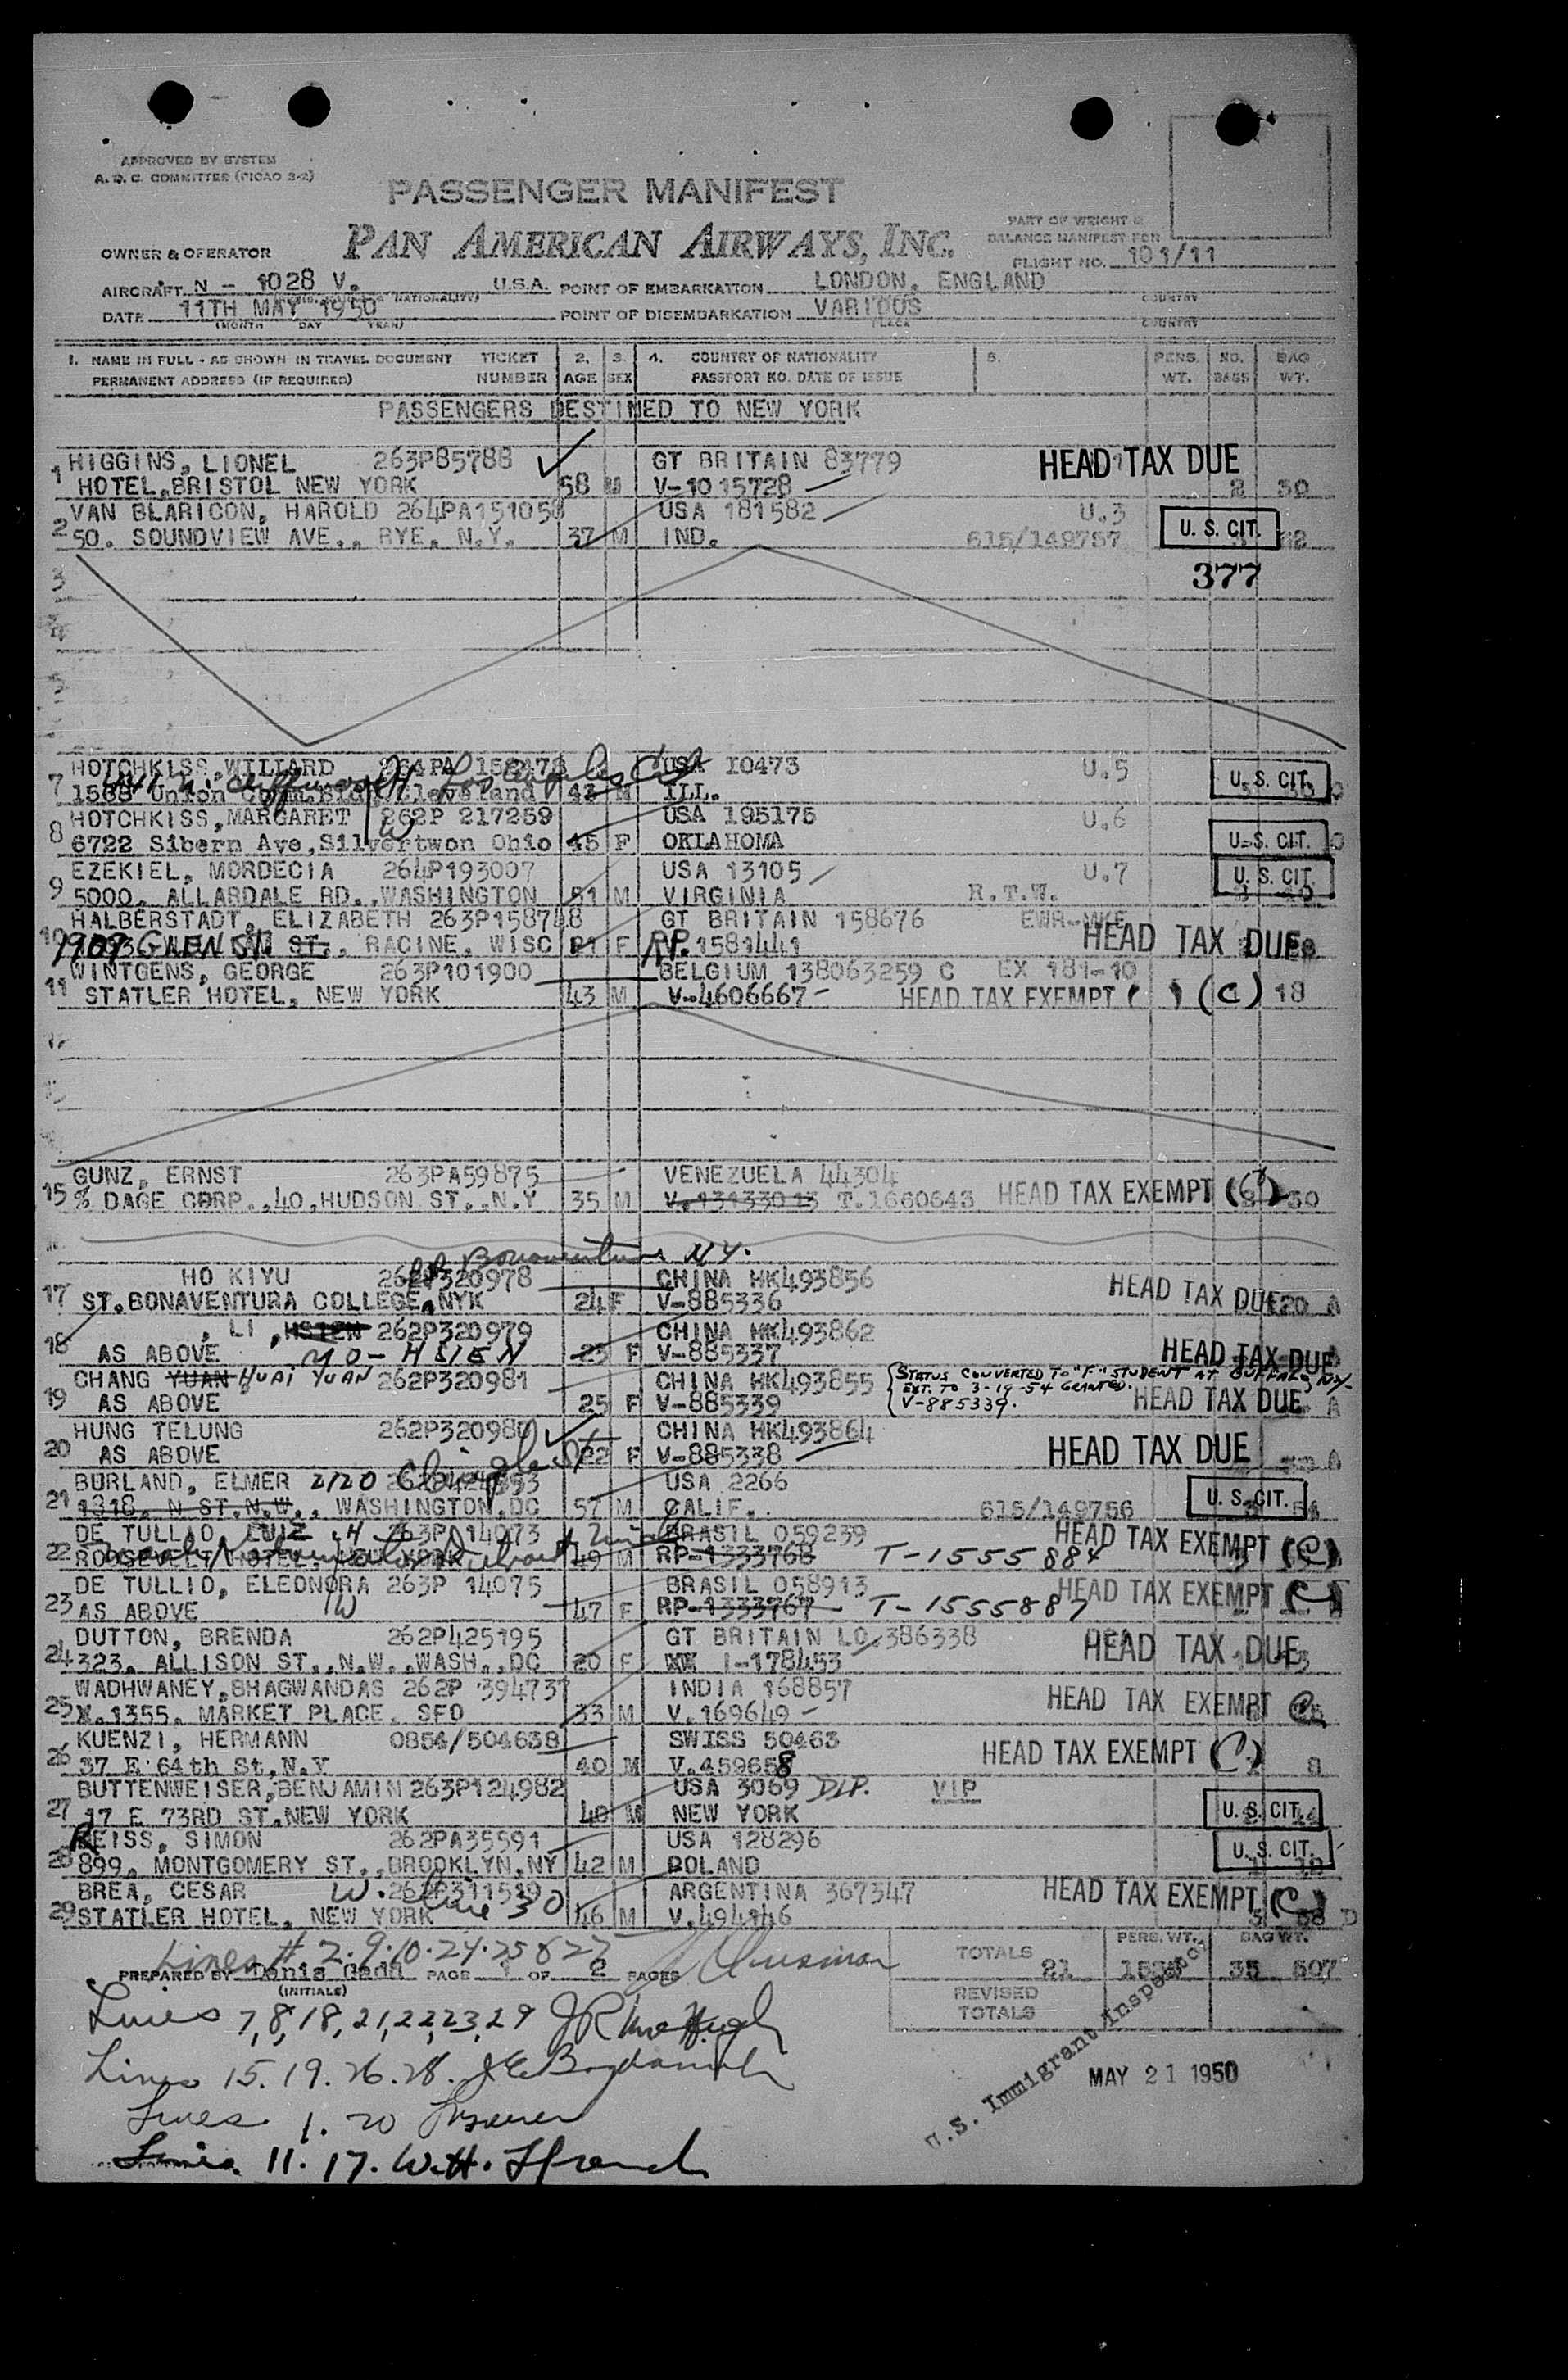 APPROVED BY SYSTEM
A. O. C. COMMITTEE (PICAO 3-2)
PASSENGER MANIFEST
PAN AMERICAN AIRWAYS, INC.
PART OF WEIGHT &
BALANCE MANIFEST FOR
FLIGHT NO. 101/11
OWNER & OPERATOR
AIRCRAFT N - 1028 V. U.S.A. POINT OF EMBARKATION LONDON, ENGLAND
DATE 11TH MAY 1950 POINT OF DISEMBARKATION VARIOUS
(MONTH DAY YEAR) PLACE COUNTRY
1. NAME IN FULL - AS SHOWN IN TRAVEL DOCUMENT TICKET 2. 3. 4. COUNTRY OF NATIONALITY 5. PERS. NO. BAG
PERMANENT ADDRESS (IF REQUIRED) NUMBER AGE SEX PASSPORT NO. DATE OF ISSUE WT. BAGS WT.
PASSENGERS DESTINED TO NEW YORK
1 HIGGINS, LIONEL 263P85788 GT BRITAIN 83779 HEAD TAX DUE
HOTEL,BRISTOL NEW YORK 58 M V-1015728 2 30
2 VAN BLARICON, HAROLD 264PA151058 USA 181582 U.3 U. S. CIT.
50. SOUNDVIEW AVE., RYE, N.Y. 37 M IND. 615/149757
377
3
4
5
7 HOTCHKISS,WILLARD 264PA 158478 USA 10473 U.5 U. S. CIT.
Los Angeles Cal
1568 Union Cleveland 43 M ILL.
8 HOTCHKISS,MARGARET W 262P 217259 USA 195175 U.6 U. S. CIT.
6722 Sibern Ave,Silvertwon Ohio 45 F OKLAHOMA
9 EZEKIEL, MORDECIA 264P193007 USA 13105 U.7 U. S. CIT.
5000. ALLARDALE RD.,WASHINGTON 51 M VIRGINIA R.T.W.
10 HALBERSTADT, ELIZABETH 263P158748 GT BRITAIN 158676 EWR-MKE
1909 GLEN ST., RACINE, WISC 21 F RP.1581441 HEAD TAX DUE
11 WINTGENS, GEORGE 263P101900 BELGIUM 138063259 C EX 181-10
STATLER HOTEL, NEW YORK 43 M V-4606667 HEAD TAX EXEMPT (C) 18
12
15 GUNZ, ERNST 263PA59875 VENEZUELA 44304
% DAGE CORP.,40,HUDSON ST.,N.Y 35 M V.13133013 T.1660643 HEAD TAX EXEMPT 30
St Bonaventure N.Y.
17 HO KIYU 262P320978 CHINA HK493856 HEAD TAX DUE
ST.BONAVENTURA COLLEGE,NYK 24 F V-885336
18 , LI ,HSIEN 262P320979 CHINA HK493862
AS ABOVE MO-HSIEN 23 F V-885337 HEAD TAX DUE
19 CHANG YUAN HUAI YUAN 262P320981 CHINA HK493855 STATUS CONVERTED TO "F" STUDENT AT BUFFALO, NY-
EXT. TO 3-19-54 GRANTED.
AS ABOVE 25 F V-885339 V-885339. HEAD TAX DUE
20 HUNG TELUNG 262P320980 CHINA HK493864 HEAD TAX DUE
AS ABOVE 22 F V-885338
21 BURLAND, ELMER 2120 USA 2266 U. S. CIT.
1318. N ST.N.W., WASHINGTON,DC 57 M CALIF. 615/149756 54
22 DE TULLIO, LUIZ H 263P 14073 BRASIL 059239 HEAD TAX EXEMPT (C)
ROOSEVELT HOTEL, NEW YORK 49 M RP-1333768 T-1555884
23 DE TULLIO, ELEONORA 263P 14075 BRASIL 058913 HEAD TAX EXEMPT
AS ABOVE W 47 F RP-1333767 T-1555887
24 DUTTON, BRENDA 262P425195 GT BRITAIN LO.386338 HEAD TAX DUE
323. ALLISON ST.,N.W.,WASH.,DC 20 F I-178453
25 WADHWANEY,BHAGWANDAS 262P 394737 INDIA 168857 HEAD TAX EXEMPT
X.1355. MARKET PLACE. SFO 33 M V.169649
26 KUENZI, HERMANN 0854/504638 SWISS 50463 HEAD TAX EXEMPT (C)
37 E 64th St.N.Y 40 M V.459658 8
27 BUTTENWEISER,BENJAMIN 263P124982 USA 3069 DIP. VIP
17 E 73RD ST.NEW YORK 49 M NEW YORK U. S. CIT.
28 REISS, SIMON 262PA35591 USA 128296 U. S. CIT.
899. MONTGOMERY ST.,BROOKLYN.NY 42 M POLAND
29 BREA, CESAR W. Line 30 ARGENTINA 367347 HEAD TAX EXEMPT (C)
STATLER HOTEL. NEW YORK 46 M V.494946
Lines # 2.9.10.24.25 & 27
PREPARED BY PAGE 1 OF 2 PAGES
(INITIALS)
TOTALS 21 PERS. WT. 35 BAG WT. 507
REVISED
TOTALS
Lines 7,8,18,21,22,23,29
Lines 15.19.26.28.
Lines 1. 20
Lines 11. 17. W.H.
U.S. Immigrant Inspector
MAY 21 1950